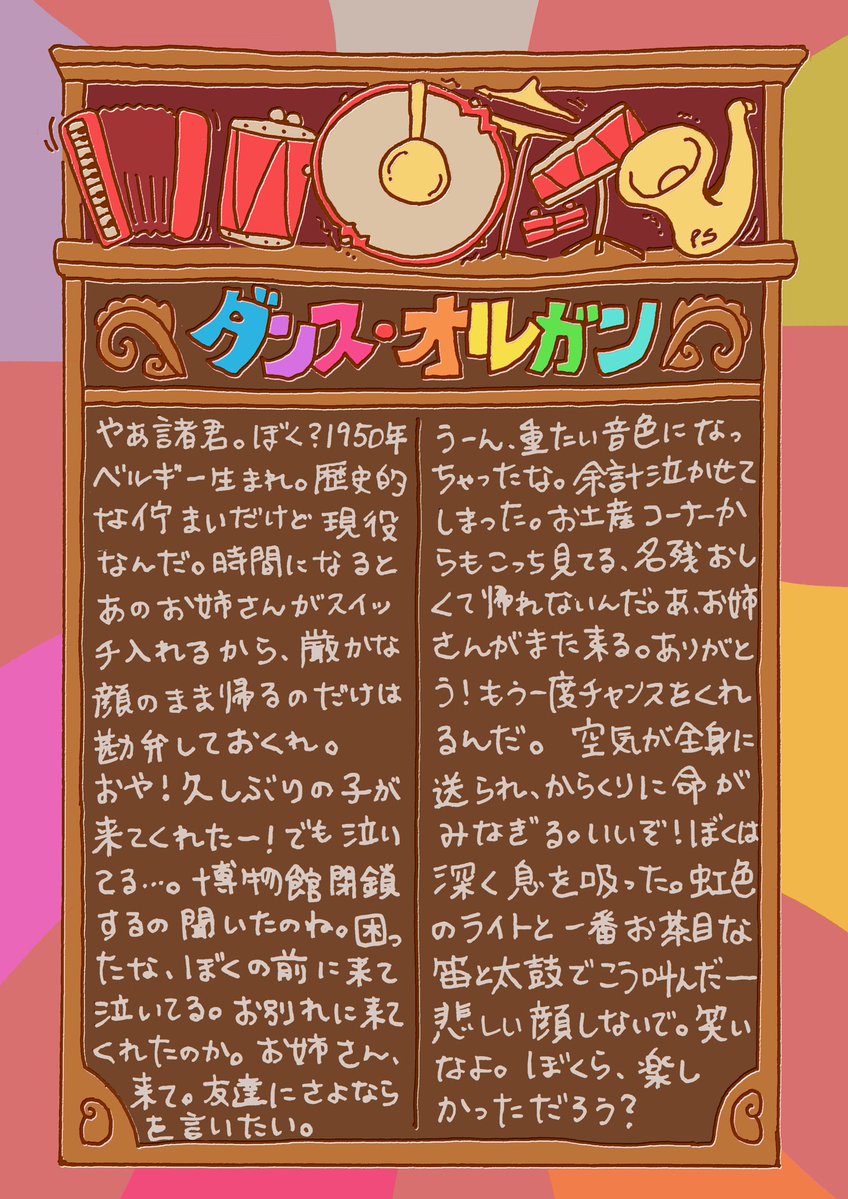 PS
ダンス・オルガン
やあ諸君。ぼく?1950年
ベルギー生まれ。歴史的
な佇まいだけど現役
なんだ。時間になると
あのお姉さんがスイッ
チ入れるから、厳かな
顔のまま帰るのだけは
勘弁しておくれ。
おや!久しぶりの子が
来てくれたー!でも泣い
てる…。博物館閉鎖
するの聞いたのね。困っ
たな、ぼくの前に来て
泣いてる。お別れに来て
くれたのか。お姉さん、
来て。友達にさよなら
を言いたい。
うーん、重たい音色になっ
ちゃったな。余計泣かせて
しまった。お土産コーナーか
らもこっち見てる、名残おし
くて帰れないんだ。あ、お姉
さんがまた来る。ありがと
う!もう一度チャンスをくれ
るんだ。 空気が全身に
送られ、からくりに命が
みなぎる。いいぞ!ぼくは
深く息を吸った。虹色
のライトと一番お茶目な
笛と太鼓でこう叫んだ―
悲しい顔しないで。笑い
なよ。ぼくら、楽し
かっただろう?